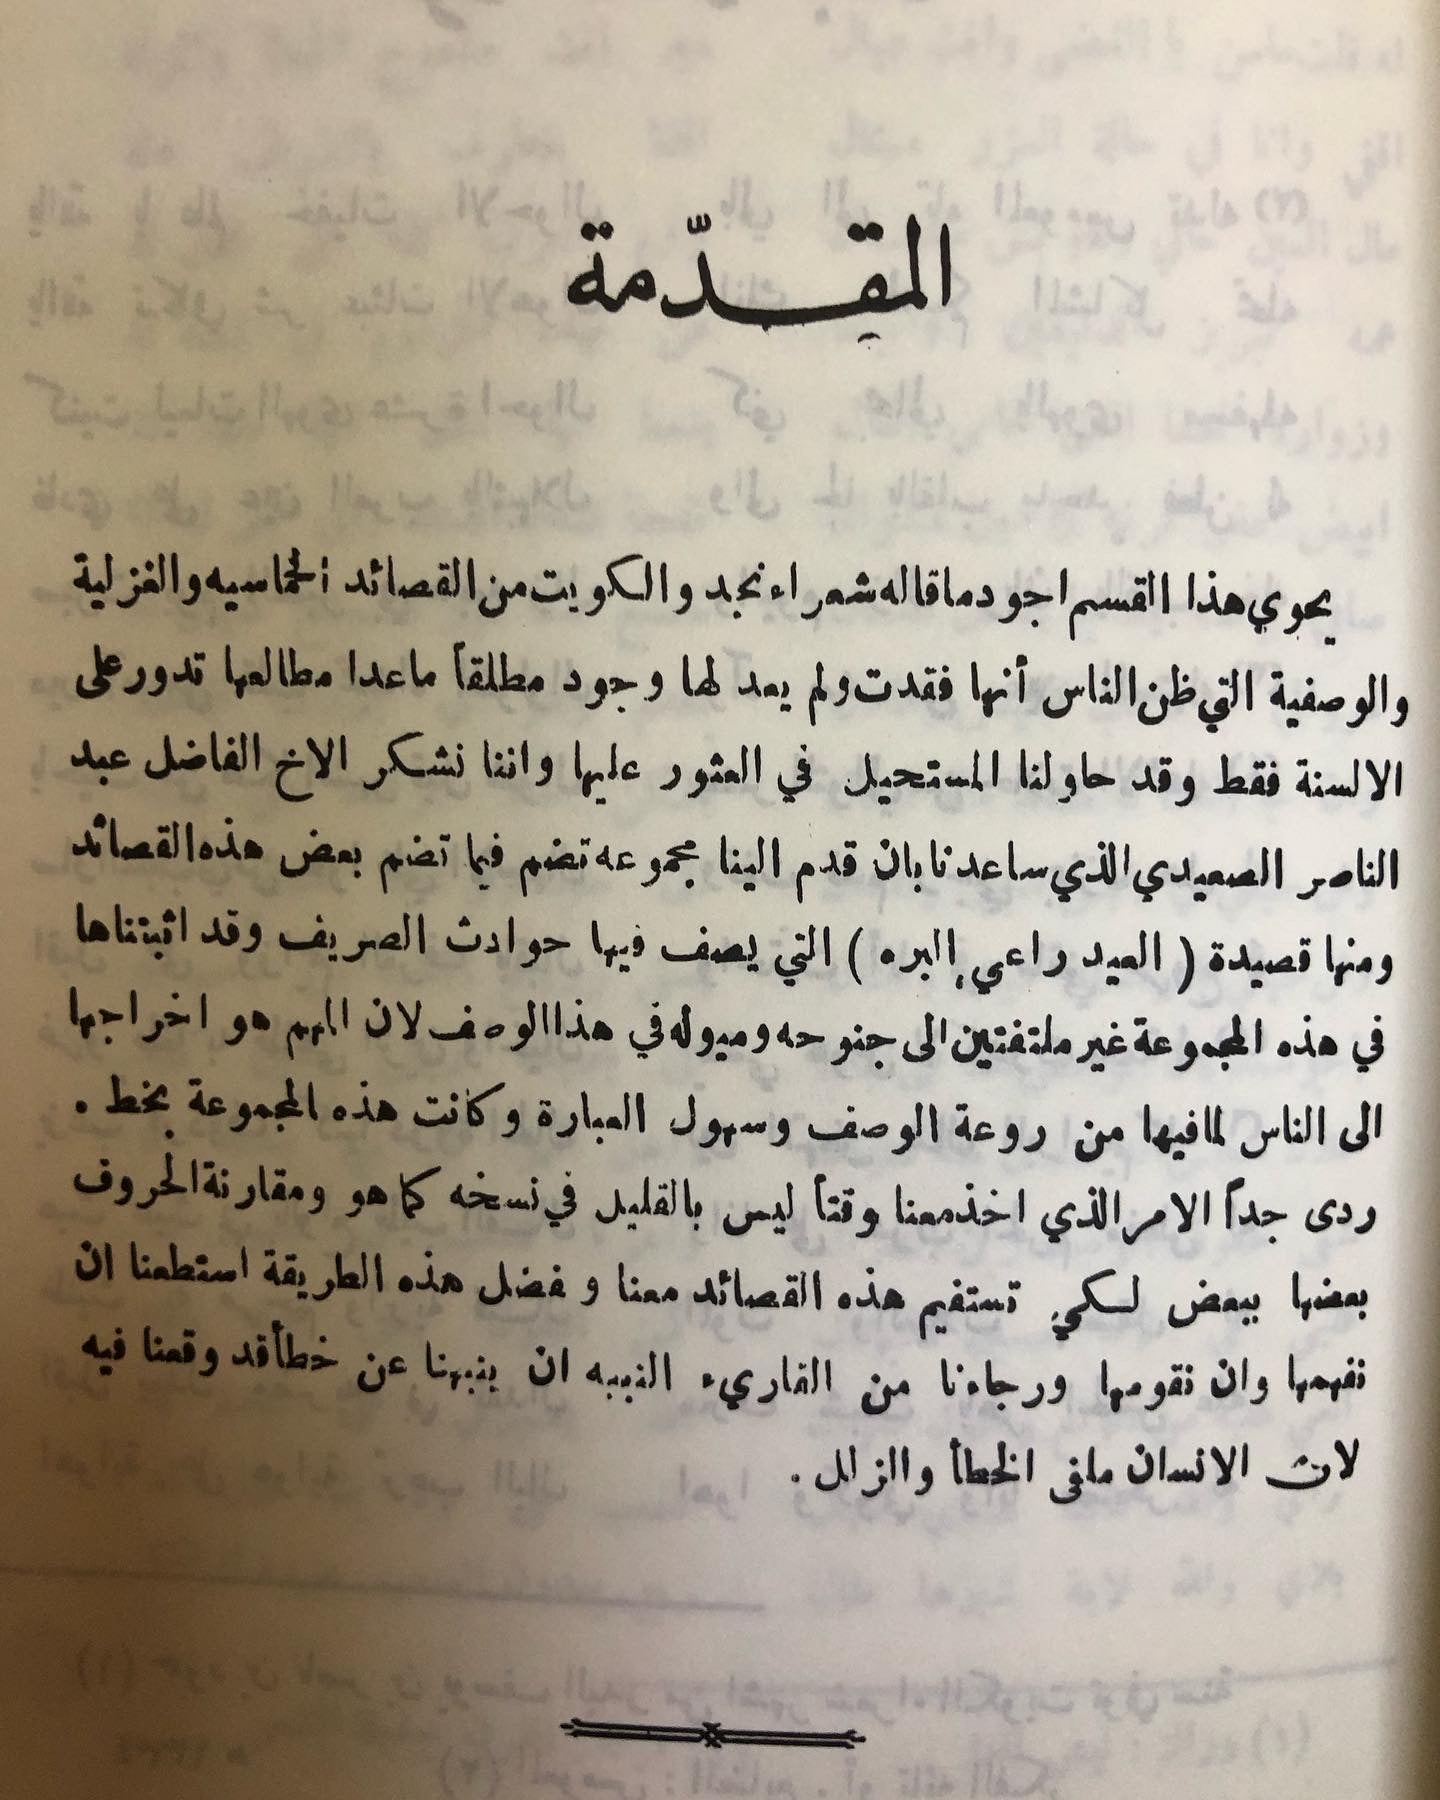 المقدّمة
يحوي هذا القسم اجود ما قاله شعراء نجد والكويت من القصائد الحماسيه والغزلية
والوصفية التي ظن الناس أنها فقدت ولم يعد لها وجود مطلقاً ماعدا مطالعها تدور على
الالسنة فقط وقد حاولنا المستحيل في العثور عليها واننا نشكر الاخ الفاضل عبد
الناصر الصعيدي الذي ساعدنا بان قدم الينا مجموعه تضم فيما تضم بعض هذه القصائد
ومنها قصيدة ( العيد راعي البره ) التي يصف فيها حوادث الصريف وقد اثبتناها
في هذه المجموعة غير ملتفتين الى جنوحه وميوله في هذا الوصف لان المهم هو اخراجها
الى الناس لما فيها من روعة الوصف وسهول العبارة وكانت هذه المجموعة بخط .
ردى جداً الامر الذي اخذ معنا وقتاً ليس بالقليل في نسخه كما هو ومقارنة الحروف
بعضها ببعض لكي تستقيم هذه القصائد معنا و فضل هذه الطريقة استطعنا ان
نفهمها وان نقومها ورجاءنا من القاريء النبيه ان ينبهنا عن خطأ قد وقعنا فيه
لان الانسان ملقى الخطأ والزلل .